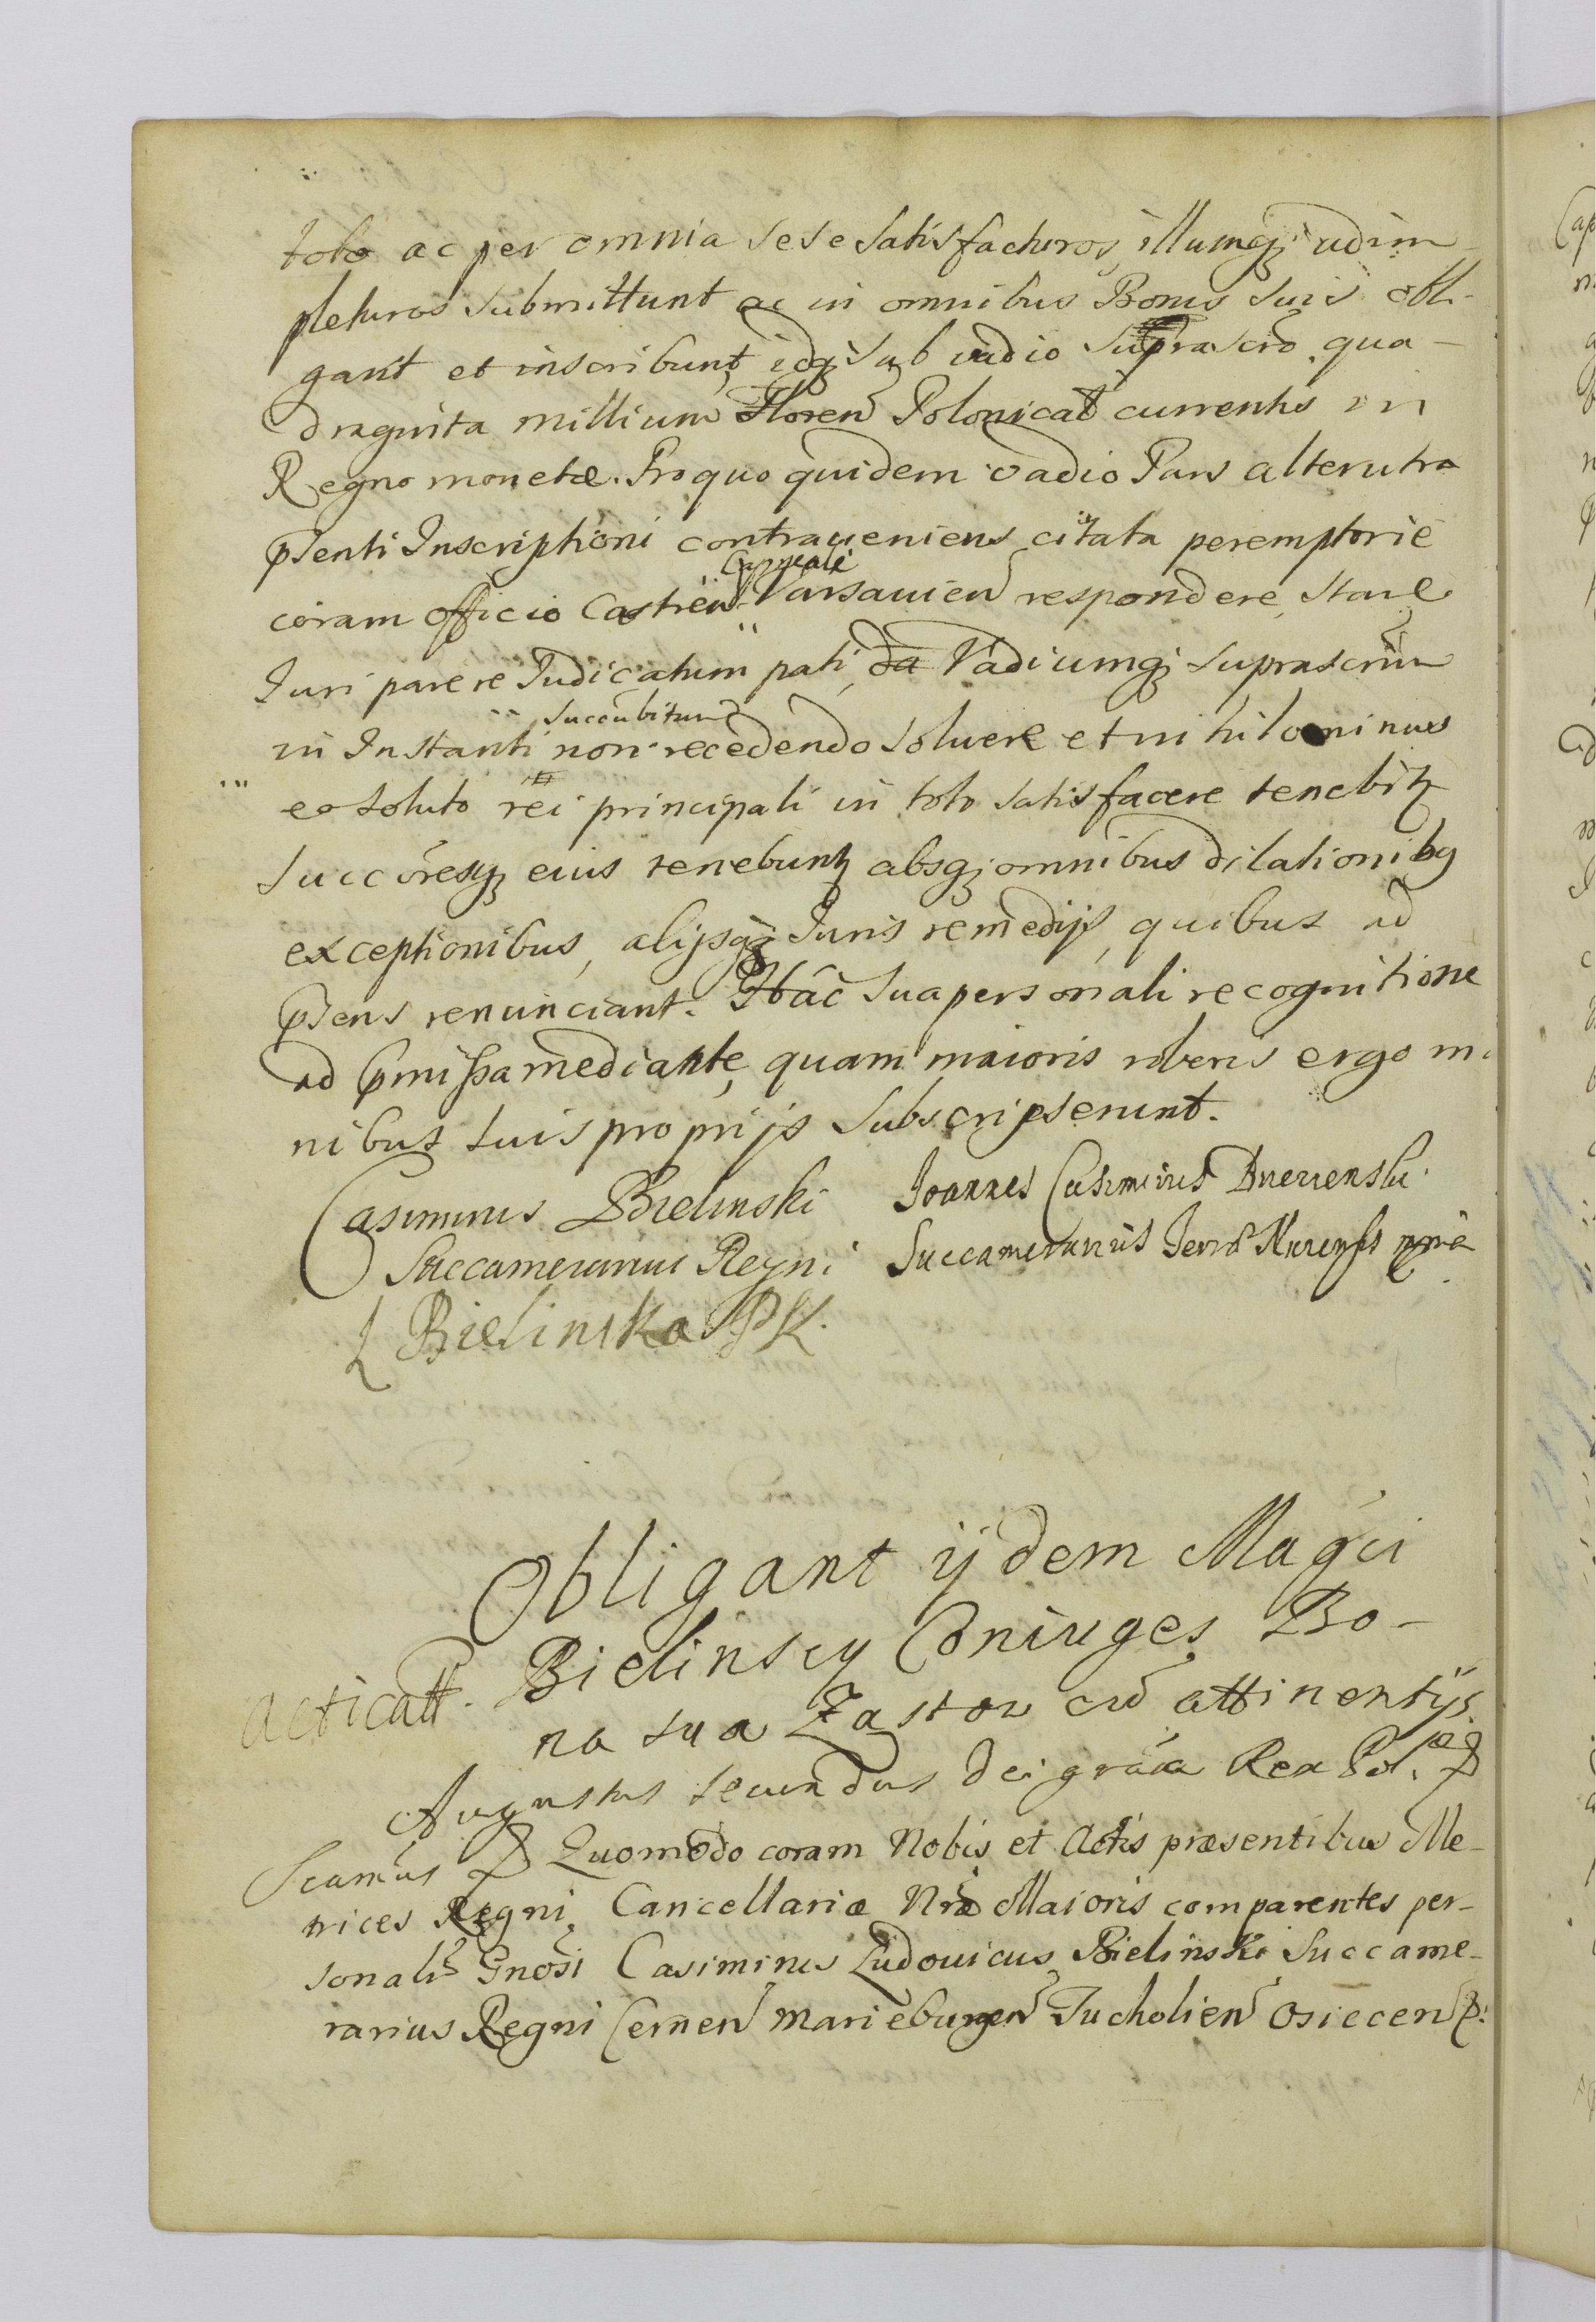 toto ac per omnia sese satisfacturos, illumq; adim-
pleturos submittunt ac in omnibus Bonis suis obli-
gant et inscribunt, idq; sub vadio suprascro qua-
draginta millium Floren Polonical currentis in
Regno monetæ. Pro quo quidem vadio Pars alterutra
pſenti Inscriptioni contraveniens citata peremptorie
coram officio Castren Varsavien respondere, stare
Juri parere Judicatum pati, Vadiumq; suprascrium
succubitum
in Instanti non recedendo solvere et nihilominus
eo soluto rei principali in toto satisfacere tenebitz
succoresq; eius tenebuntz absq; omnibus dilationibq
exceptionibus, alijsq; Juris remedijs, quibus ad
pſens renunciant. Hâc sua personali recognitione
ad pmissa mediante, quam maioris roboris ergo ma
nibus suis proprijs subscripserunt.
Casimirus Bielinski
Succamerarius Regni
Joannes Casimirus
Succamerarius Terræ Nurensis mpria
L Bielinska PK.
Obligant ijdem Magci
Bielinscy Coniuges Bo-
acticatt.
na sua Zastow cu attinentijs
Augustus secundus Dei gratia Rex Pol. &
Scamus & Quomodo coram Nobis et Actis præsentibus Me-
trices Regni, Cancellariæ Nræ Maioris comparentes per-
sonalr Gnosi Casimirus Ludovicus Bielinski Succame-
rarius Regni Cernen Marieburgen Tucholien Osiecen &